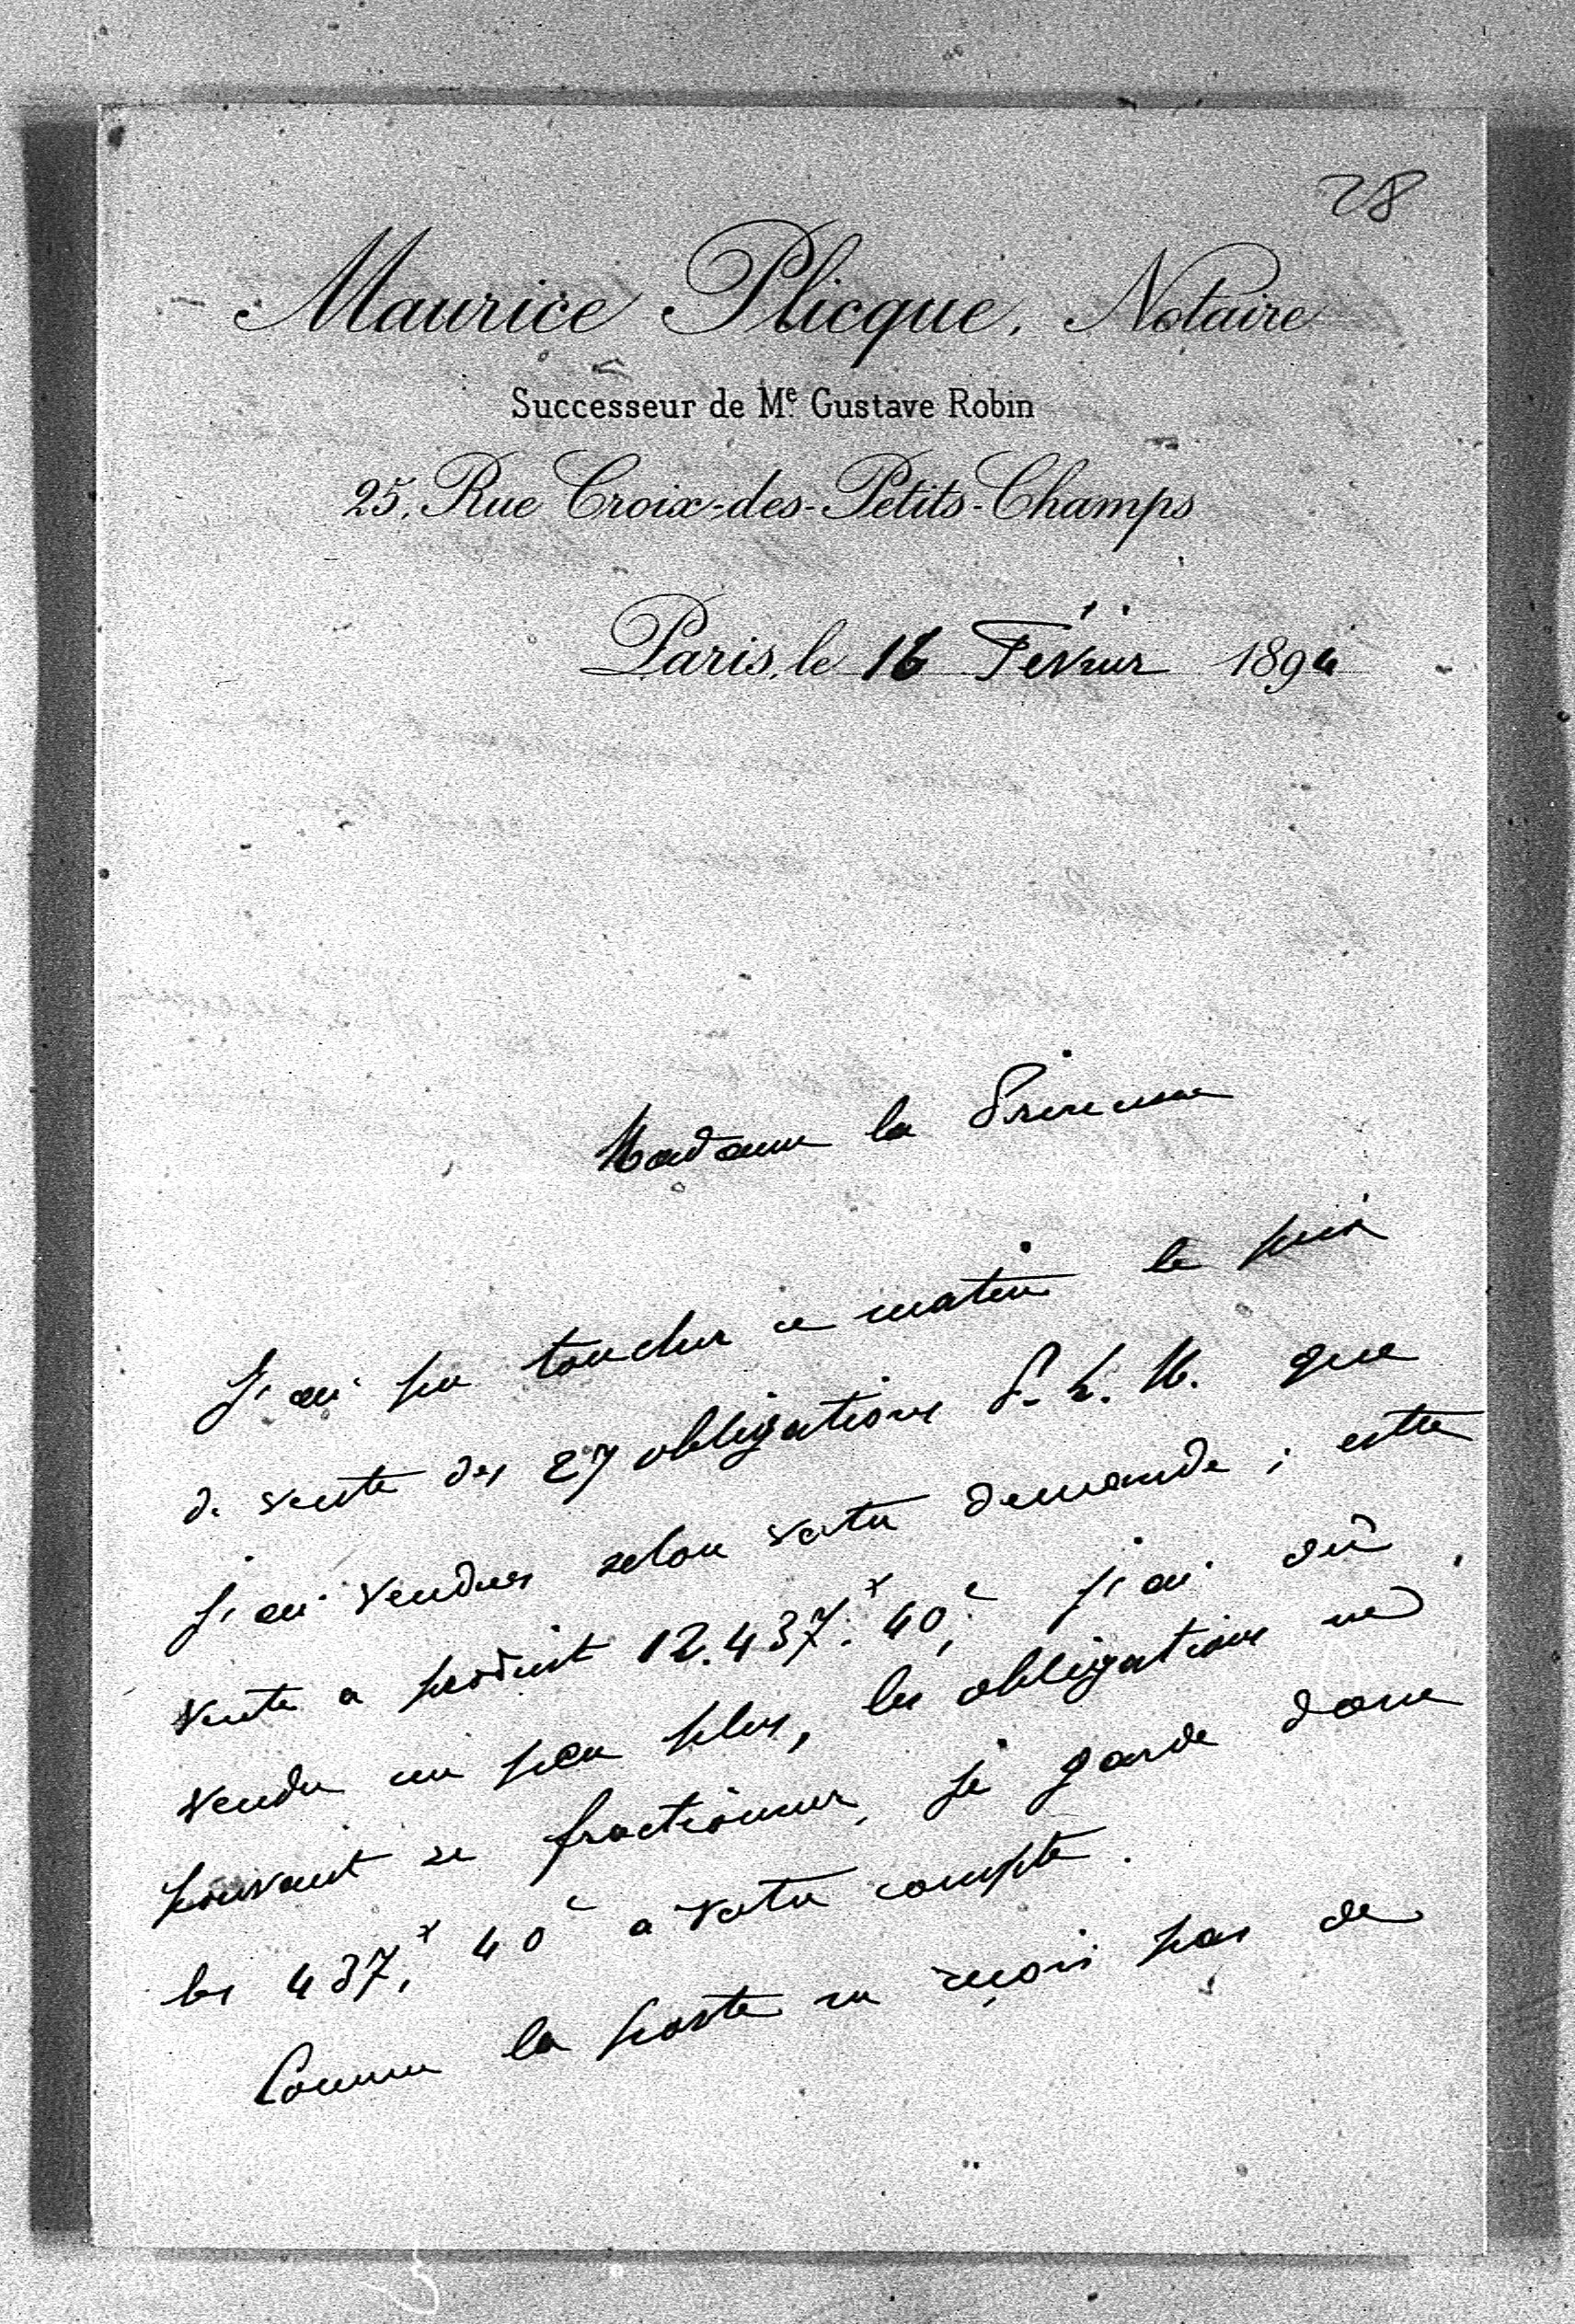 28
Maurice Plicque, Notaire
Successeur de Me. Gustave Robin
25, Rue Croix-des-Petits-Champs
Paris, le 16 Février 1894
Madame la Princesse
J'ai pu toucher ce matin le prix
de vente des 27 obligations P. L. M. que
j'ai vendues selon votre demande ; cette
vente a produit 12.437f. 40c. j'ai dû
vendre un peu plus, les obligations ne
pouvant se fractionner, je garde donc
les 437f. 40c a votre compte.
Comme la poste ne reçois pas de